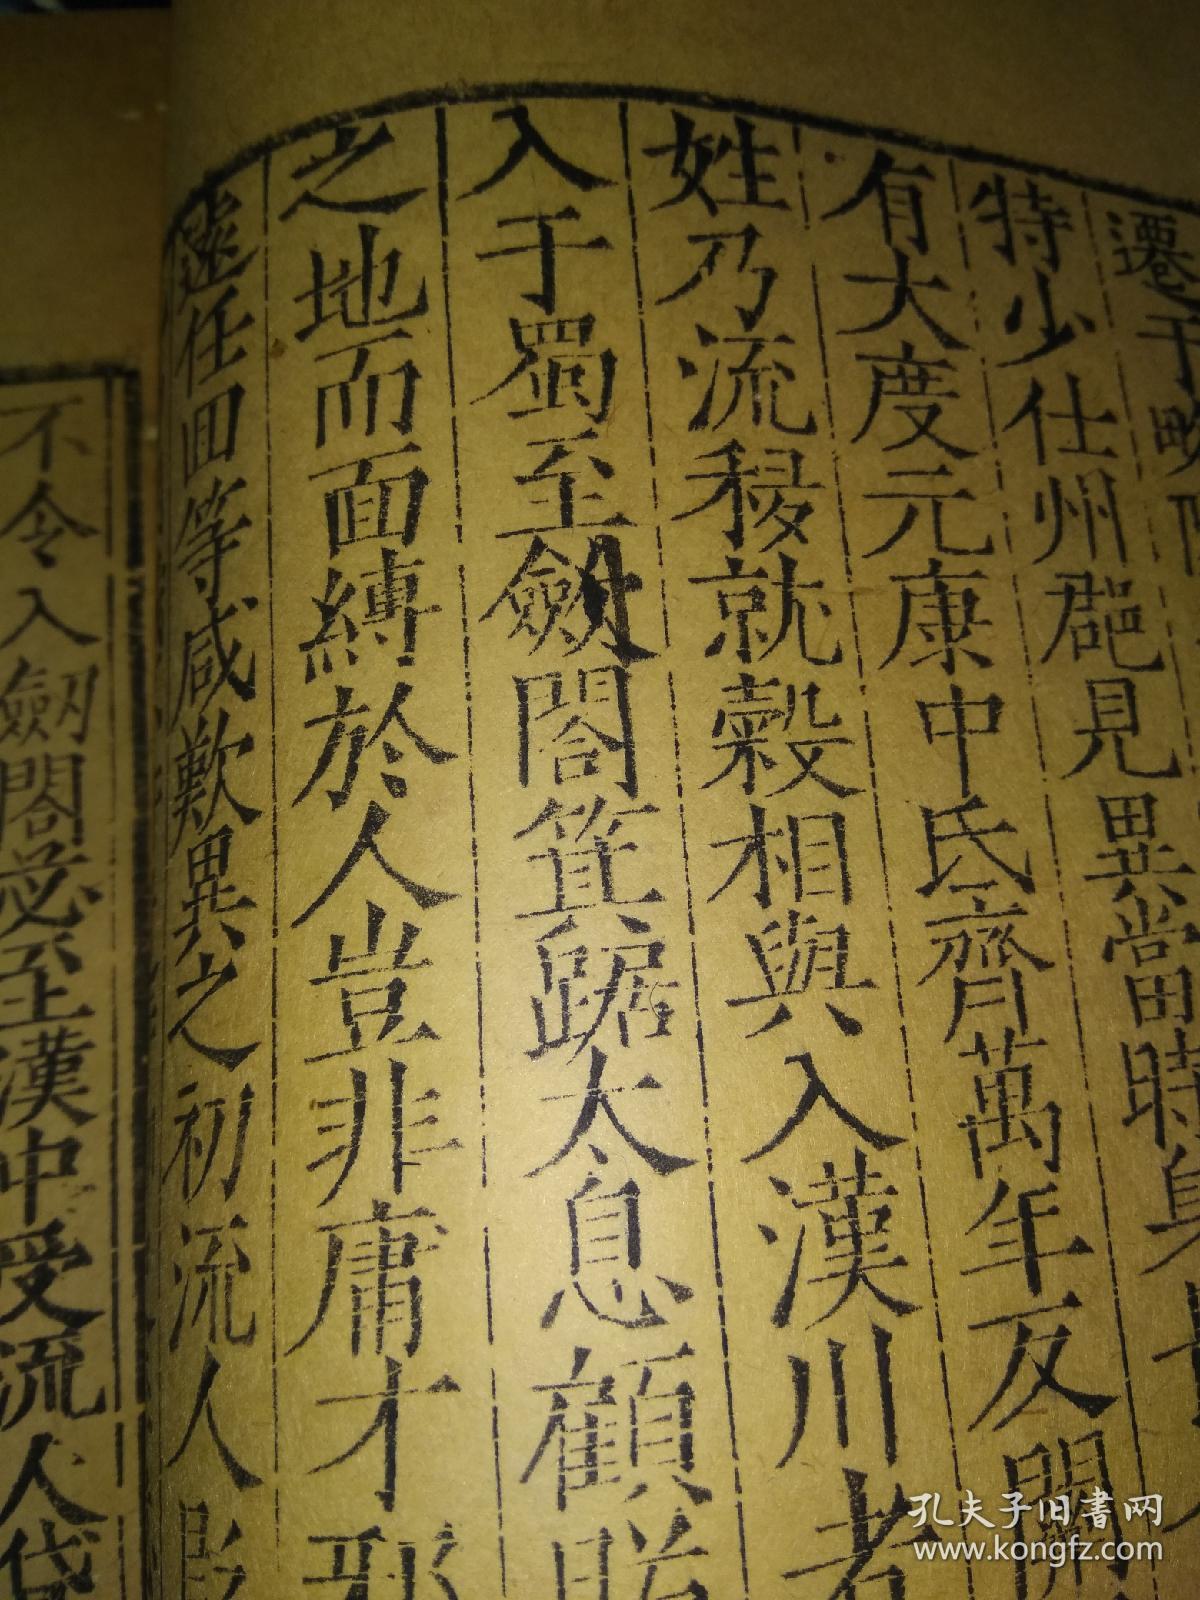 遷于略
特少仕州郡見異當時身
有大度元康中氐齊萬年反關
姓乃流移就穀相與入漢川者
入于蜀至劒閣箕踞太息顧
之地而面縛於人豈非庸才邪
遠任回等咸歎異之初流人
不令入劒閣苾至漢中受流人貸
孔夫子旧書网
www.kongfz.com